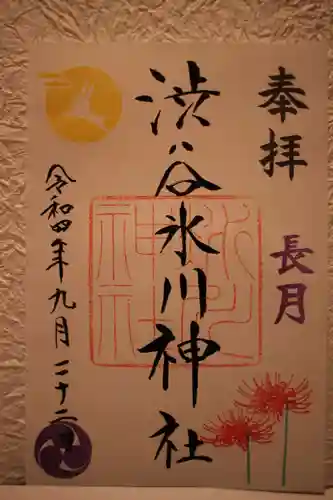 奉拝
長月
渋谷氷川神社
令和四年九月二十二日